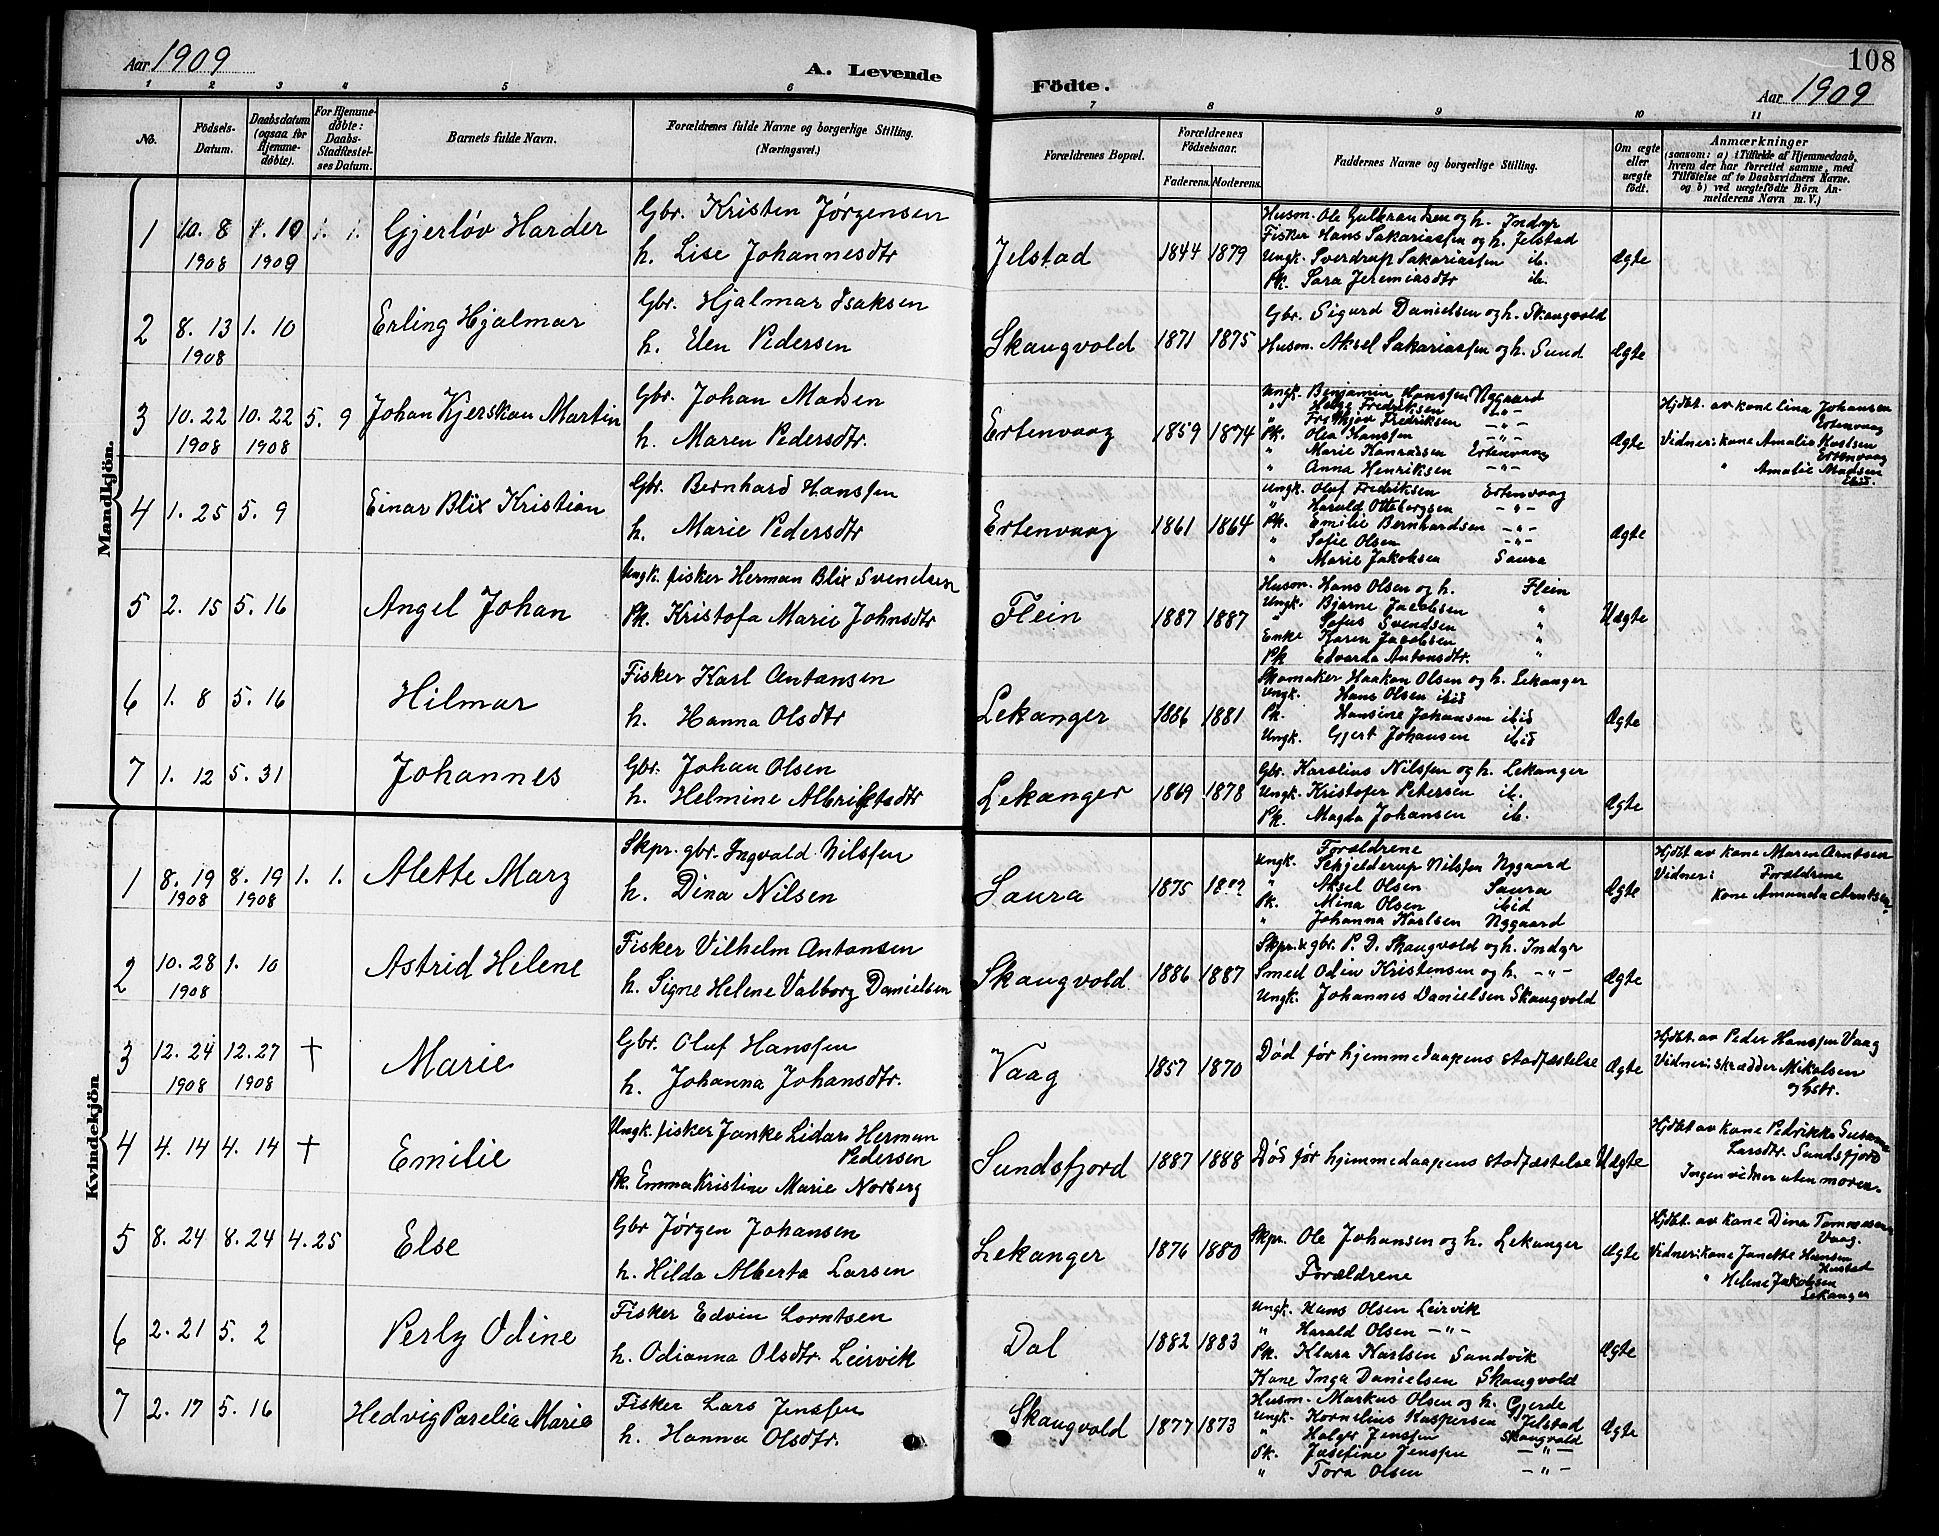 Aar 1909
A. Levende Födte.
108
Aar 1909
1 2 3 4 5 6 7 8 9 10 11
No.
Födsels-Datum.
Daabsdatum (ogsaa for Hjemmedöbte).
For Hjemmedöbte: Daabs-Stadfæstelses Datum.
Barnets fulde Navn.
Forældrenes fulde Navne og borgerlige Stilling. (Næringsvei.)
Forældrenes Bopæl.
Forældrenes Födselsaar.
Faderens. Moderens.
Faddernes Navne og borgerlige Stilling.
Om ægte eller uægte födt.
Anmærkninger
(saasom: a) i Tilfælde af Hjemmedaab, hvem der har forrettet samme, med Tilföielse af to Daabsvidners Navne. og b) ved uægtefödte Börn Anmelderens Navn m. V.)
Mandkjön.
1 10. 8 1908 1. 10 1909 1. 1. Gjerløv Harder
Gbr. Kristen Jørgensen
h. Lise Johannesdtr
Jelstad 1844 1879
Husm. Ole Gulbrandsen og h. Indyr
Fisker Hans Sakariassen og h. Jelstad
Ungk. Sverdrup Sakariassen ib.
Pk. Sara Jeremiasdtr ib.
Ægte
2 8. 13 1908 1. 10 Erling Hjalmar
Gbr. Hjalmar Isaksen
h. Elen Pedersen
Skaugvold 1871 1875
Gbr. Sigurd Danielsen og h. Skaugvold
Husm. Aksel Sakariassen og h. Sund
Ægte
3 10. 22 1908 10. 22 1908 5. 9 Johan Kjerskau Martin
Gbr. Johan Madsen
h. Maren Pedersdtr.
Ertenvaag 1859 1874
Ungk. Benjamin Hanssen Nygaard
" Helge Fredriksen -"-
" Frithjov Fredriksen -"-
Pk. Olea Hanssen -"-
" Marie Konradsen Ertenvaag
" Anna Henriksen -"-
Ægte
Hjdbt. av kone Lina Johansen
Ertenvaag
Vidner: kone Amalie
Ertenvaag
" Amalie Madsen
Ibid.
4 1. 25 5. 9 Einar Blix Kristian
Gbr. Bernhard Hanssen
h. Marie Pedersdtr
Ertenvaag 1861 1864
Ungk. Oluf Fredriksen Ertenvaag
" Harald Ottebergsen -"-
Pk. Emilie Bernhardsen -"-
" Sofie Olsen -"-
" Marie Jakobsen Saura
Ægte
5 2. 15 5. 16 Angel Johan
Ungk. fisker Herman Blix Svendsen
Pk. Kristofa Marie Johnsdtr
Flein 1887 1887
Husm. Hans Olsen og h. Flein
Ungk. Bjarne Jacobsen "
" Sofus Svendsen "
Enke Karen Jacobsen "
Pk Edvarda Antonsdtr. "
Uægte
6 1. 8 5. 16 Hilmar
Fisker Karl Antonsen
h. Hanna Olsdtr
Lekanger 1886 1881
Skomaker Haakon Olsen og h. Lekanger
Ungk. Hans Olsen ibid
Pk. Hansine Johansen ibid
Ungk. Gjert Johansen ibid
Ægte
7 1. 12 5. 31 Johannes
Gbr. Johan Olsen
h. Helmine Albrigtsdtr
Lekanger 1869 1878
Gbr. Karolius Nilssen og h. Lekanger
Ungk. Kristofer Petersen ib.
Pk. Magda Johansen ib.
Ægte
Kvindekjön
1 8. 19 1908 8. 19 1908 1. 1. Alette Mary
Skpr. gbr. Ingvald Nilssen
h. Dina Nilsen
Saura 1875 18??
Forældrene
Ungk. Schjelderup Nilssen Nygaard
" Aksel Olsen Saura
Pk. Mina Olsen ibid
" Johanna Karlsen Nygaard
Ægte
Hjdbt av kone Maren Arntsen
Vidner: Forældrene
Kone Amanda Arntsen
2 10. 28 1908 1. 10 Astrid Helene
Fisker Vilhelm Antonsen
h. Signe Helene Valborg Danielsen
Skaugvold 1886 1887
Skpr. & gbr. P. D. Skaugvold og h. Indyr
Smed Odin Kristensen og h. -"-
Ungk. Johannes Danielsen Skaugvold
Ægte
3 12. 24 1908 12. 27 1908 † Marie
Gbr. Oluf Hanssen
h. Johanna Johansdtr.
Vaag 1857 1870
Død før hjemmedaapens stadfæstelse
Ægte
Hjdbt. av Peder Hanssen Vaag
Vidner: skrædder Mikalsen
og hstr.
4 4. 14 4. 14 † Emilie
Ungk. fisker Janke Lidars Herman
Pedersen
Pk. Emma Kristine Marie Norberg
Sundsfjord 1887 1888
Død før hjemmedaapens stadfæstelse
Uægte
Hjdbt av kone Pedrikke Susanna
Larsdtr. Sundsfjord
Ingen vidner uten moren.
5 8. 24 8. 24 4. 25 Else
Gbr Jørgen Johansen
h. Hilda Alberta Larsen
Lekanger 1876 1880
Skpr. Ole Johansen og h. Lekanger
Forældrene
Ægte
Hjdbt. av kone Dina Tommesen
Vaag.
Vidner: kone Janette Hansen
Hustad
" Helene Jakobsen
Lekanger
6 2. 21 5. 2 Perly Odine
Fisker Edvin Lorntsen
h. Odianna Olsdtr. Leirvik
Dal 1882 1883
Ungk. Hans Olsen Leirvik
" Harald Olsen -"-
Pk. Klara Karlsen Sandvik
Kone Inga Danielsen Skaugvold
Ægte
7 2. 17 5. 16 Hedvig Parelia Marie
Fisker Lars Jenssen
h. Hanna Olsdtr.
Skaugvold 1877 1873
Husm. Markus Olsen og h. Gjerde
Ungk. Kornelius Kaspersen Jelstad
" Holger Jenssen Skaugvold
Pk. Josefine Jenssen -"-
" Tora Olsen -"-
Ægte